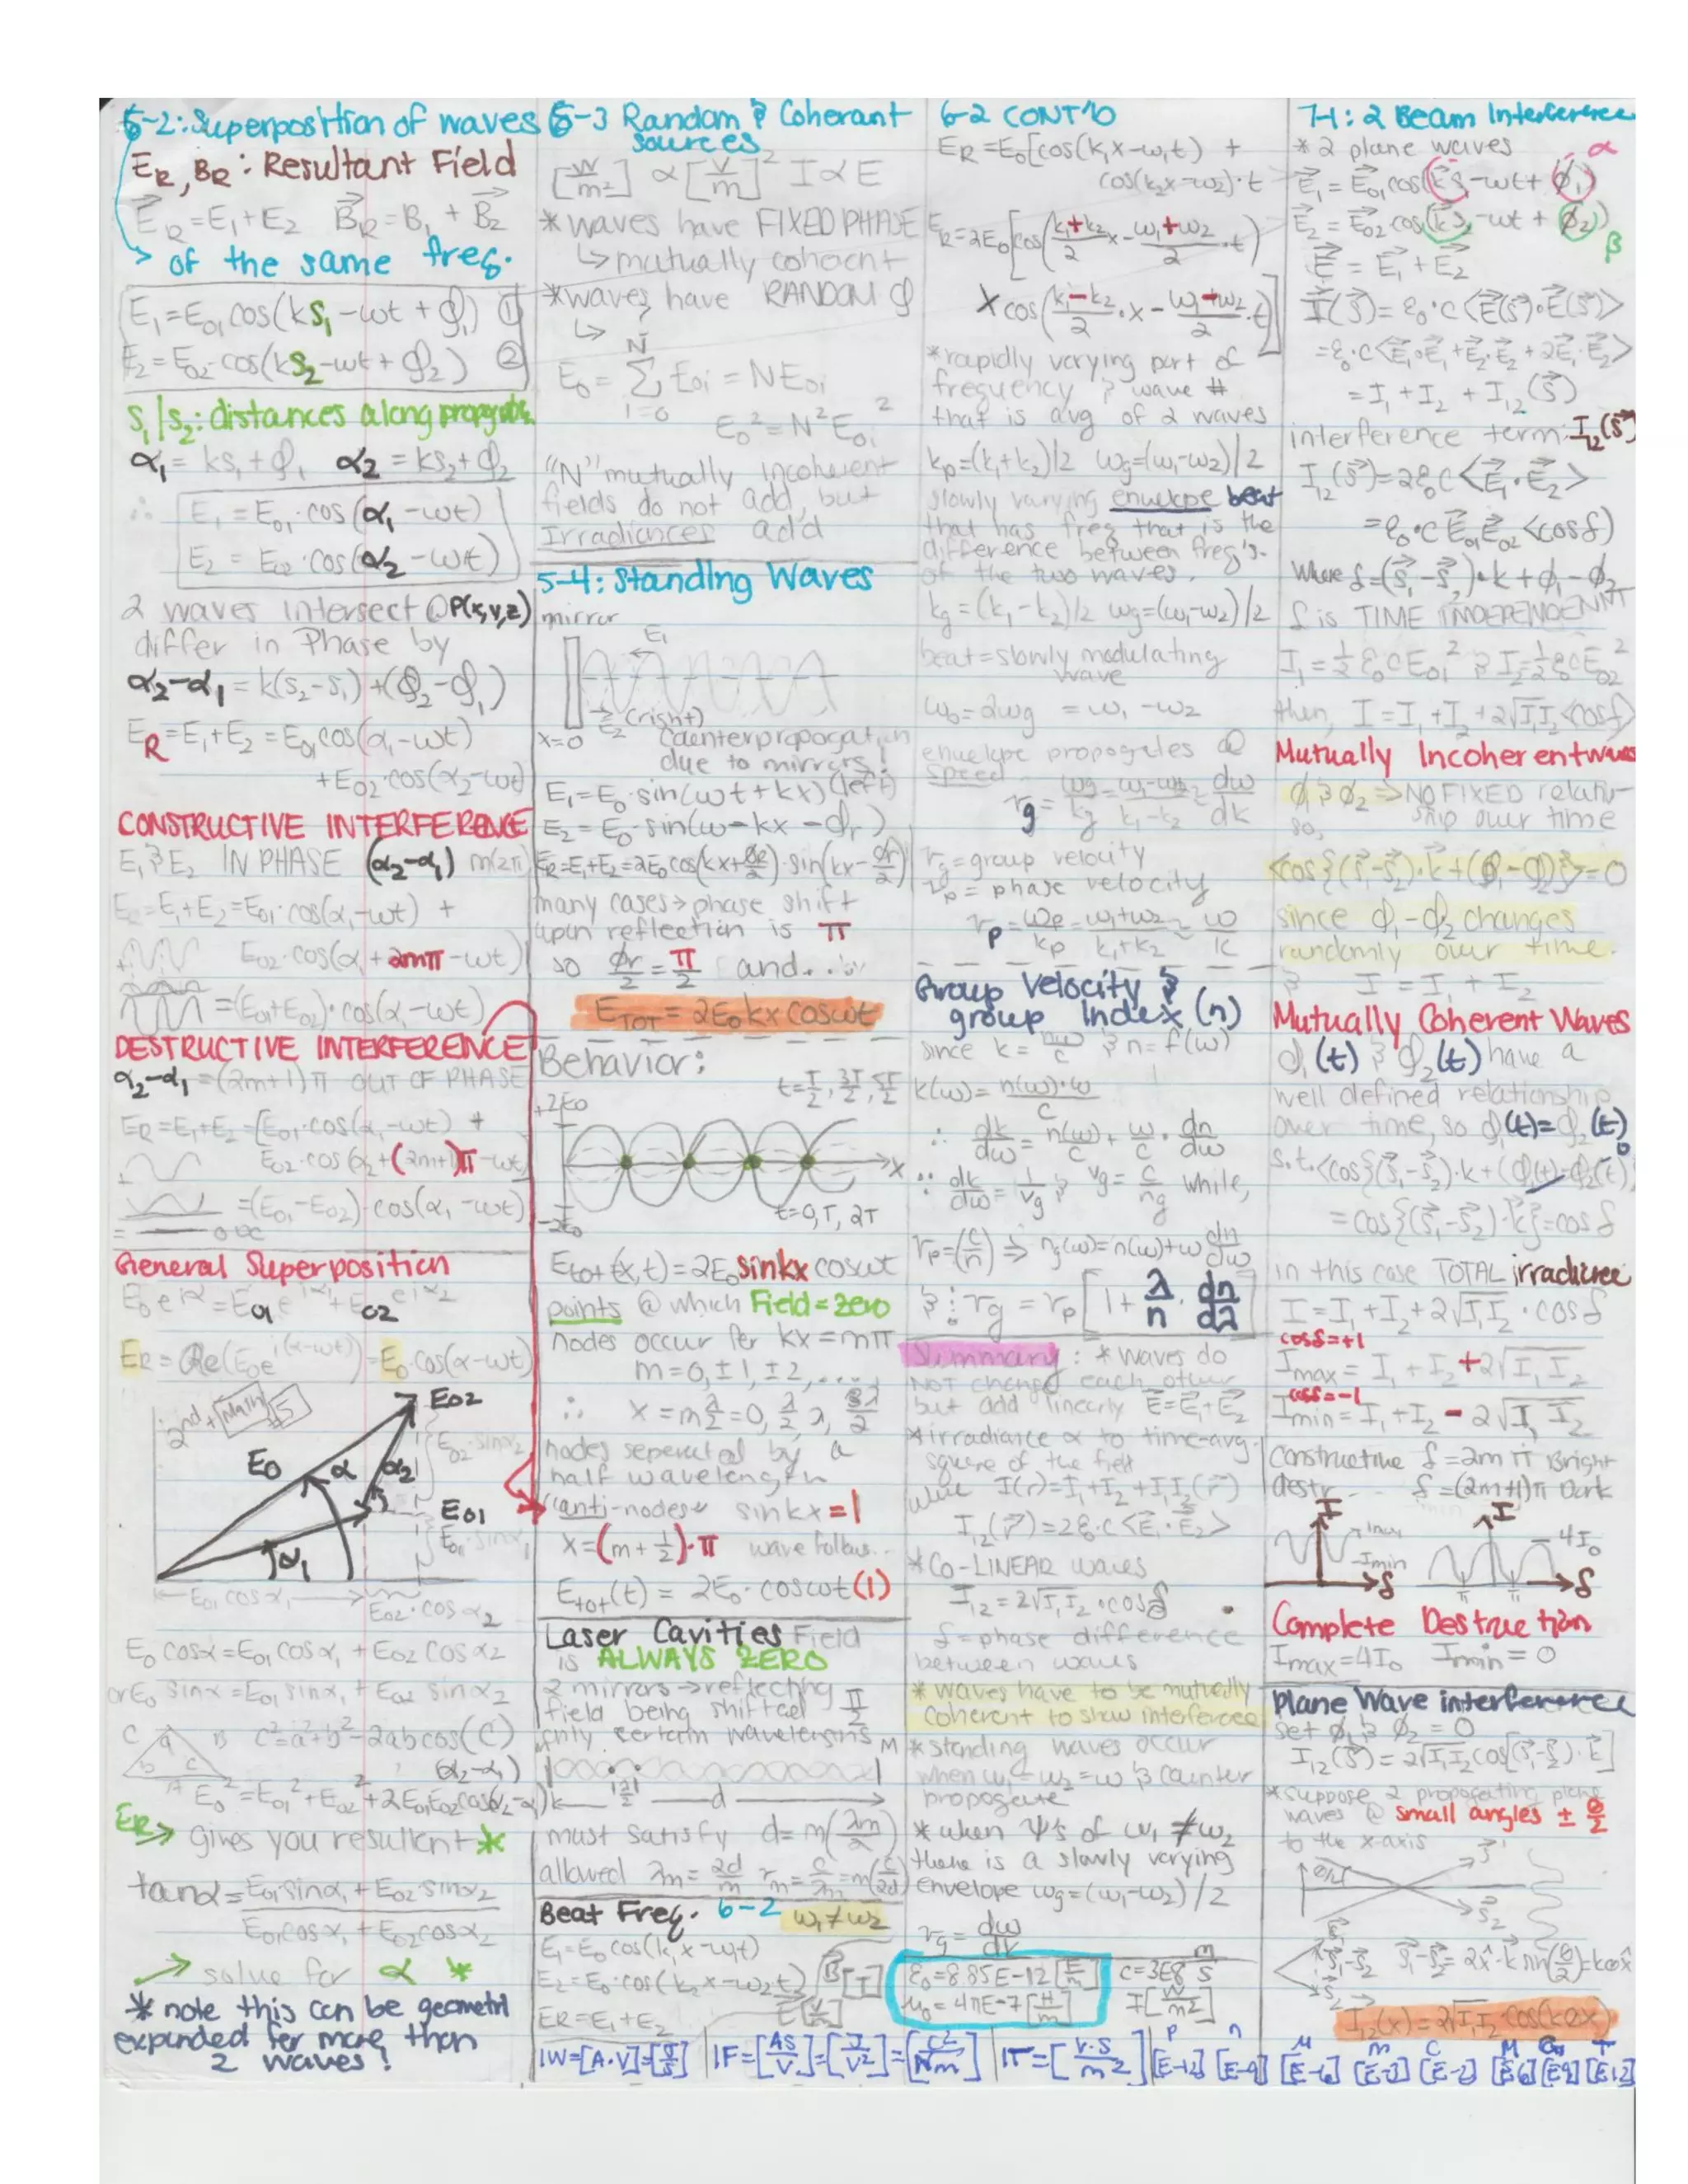 5-2: Superposition of waves
E_R, B_R: Resultant Field
E⃗_R = E1 + E2  B⃗_R = B⃗1 + B⃗2
↳ of the same freq.
E1 = E01 cos(ks1 - ωt + φ1) ①
E2 = E02 · cos(ks2 - ωt + φ2) ②
S1/S2: distances along
α1 = ks1 + φ1  α2 = ks2 + φ2
∴ E1 = E01 · cos(α1 - ωt)
E2 = E02 · cos(α2 - ωt)
2 waves intersect @
differ in Phase by
α2 - α1 = k(s2 - s1) + (φ2 - φ1)
E_R = E1 + E2 = E01 cos(α1 - ωt)
+ E02 · cos(α2 - ωt)
CONSTRUCTIVE INTERFERENCE
E1 & E2 IN PHASE (α2 - α1) m(2π)
E_R = E1 + E2 = E01 · cos(α1 - ωt) +
E02 · cos(α1 + 2mπ - ωt)
= (E01 + E02) · cos(α1 - ωt)
DESTRUCTIVE INTERFERENCE
α2 - α1 = (2m+1)π OUT OF PHASE
E_R = E1 + E2 = [E01 · cos(α1 - ωt) +
E02 · cos(α2 + (2m+1)π - ωt
= (E01 - E02) · cos(α1 - ωt)
General Superposition
E0 e^iα = E01 e^iα1 + E02 e^iα2
E_R = Re(E0 e^i(α-ωt)) = E0 · cos(α - ωt)
E02
E02 · sinα2
E0 α α2
E01
E01 · sinα1
α1
E01 cosα1
E02 · cosα2
E0 cosα = E01 cosα1 + E02 cosα2
or E0 sinα = E01 sinα1 + E02 sinα2
c² = a² + b² - 2ab cos(C)
(α2 - α1)
E0² = E01² + E02² + 2E01E02 cos(α2 - α1)
E_R → gives you resultent *
tanα = (E01 sinα1 + E02 · sinα2) / (E01 cosα1 + E02 cosα2)
→ solve for α *
* note this can be geometri
expanded for more than
2 waves!
5-3 Random & Coherant
sources
[W/m²] ∝ [V/m]² I ∝ E
* waves have FIXED PHASE
↳ mutually coherent
* waves have RANDOM φ
↳
E0 = Σ E0i = N E0i
N
i=0
E0² = N² E0i²
"N" mutually incoherent
fields do not add, but
Irradiances add
5-4: Standing Waves
mirror
E1
E2 (right)
x=0 Counterpropogation
due to mirrors!
E1 = E0 · sin(ωt + kx) (left)
E2 = E0 · sin(ω - kx - φr)
E_R = E1 + E2 = 2E0 cos(kx + φr/2) · sin(kx - φr/2)
many cases → phase shift
upon reflection is π
so φr/2 = π/2 and...
E_TOT = 2E0 kx cosωt
Behavior:
t = T/2, 3T/2, 5T/2
+2E0
x
-2E0
t = 0, T, 2T
Etot(x,t) = 2E0 sinkx cosωt
points @ which Field = zero
nodes occur for kx = mπ
m = 0, ±1, ±2, ....
∴ x = m λ/2 = 0, λ/2, λ, 3λ/2
nodes seperated by a
half wavelength
anti-nodes sinkx = 1
x = (m + 1/2) · π wave follows..
Etot(t) = 2E0 · cosωt (1)
Laser Cavities Field
is ALWAYS ZERO
2 mirrors → reflecting
field being shifted π/2
only certain wavelengths
λ/2 d
must satisfy d = m(λm/2)
allowed λm = 2d/m νm = c/λm = m(c/2d)
Beat Freq. 6-2 ω1 ≠ ω2
E1 = E0 cos(k1x - ω1t)
E2 = E0 · cos(k2x - ω2t)
ER = E1 + E2
B[T]
E[V/m]
6-2 CONT'D
E_R = E0 [cos(k1x - ω1t) +
cos(k2x - ω2) · t
E_R = 2E0 [cos((k1+k2)/2 x - (ω1+ω2)/2 · t)
X cos((k1-k2)/2 · x - (ω1-ω2)/2 · t)]
* rapidly varying part of
frequency & wave #
that is avg of 2 waves
kp = (k1+k2)/2 ωg = (ω1-ω2)/2
slowly varying envelope beat
that has freq that is the
difference between freq's.
of the two waves.
kg = (k1 - k2)/2 ωg = (ω1 - ω2)/2
beat = slowly modulating
wave
ωb = 2ωg = ω1 - ω2
envelope propogates @
speed
vg = ωg/kg = (ω1-ω2)/(k1-k2) ≈ dω/dk
vg = group velocity
vp = phase velocity
vp = ωp/kp = (ω1+ω2)/(k1+k2) ≈ ω/k
Group Velocity &
group Index (n)
since k = nω/c & n = f(ω)
k(ω) = n(ω)·ω/c
∴ dk/dω = n(ω)/c + ω/c · dn/dω
∴ dk/dω = 1/vg & vg = c/ng while,
vp = (c/n) ⇒ ng(ω) = n(ω) + ω dn/dω
& ∴ vg = vp [1 + λ/n · dn/dλ]
Summary: * waves do
NOT change each other
but add linearly E⃗ = E⃗1 + E⃗2
* irradiance ∝ to time-avg.
square of the field
I(r) = I1 + I2 + I1I2(r⃗)
I12(r⃗) = 2ε0c<E⃗1 · E⃗2>
* CO-LINEAR waves
I12 = 2√I1I2 · cosδ
δ = phase difference
between waves
* waves have to be mutually
coherent to show interference
* standing waves occur
when ω1 = ω2 = ω & counter
propogate
* when ψ's of ω1 ≠ ω2
there is a slowly varying
envelope ωg = (ω1 - ω2)/2
vg = dω/dk
ε0 = 8.85E-12 [F/m]
μ0 = 4πE-7 [H/m]
c = 3E8 m/s
I[W/m²]
7-1: 2 Beam Interference
* 2 plane waves
E⃗1 = E⃗01 cos(ks1 - ωt + φ1) α
E⃗2 = E⃗02 · cos(ks2 - ωt + φ2) β
E⃗ = E⃗1 + E⃗2
I⃗(s⃗) = ε0 · c <E⃗(s⃗) · E⃗(s⃗)>
= ε0 · c <E⃗1 · E⃗1 + E⃗2 · E⃗2 + 2E⃗1 · E⃗2>
= I1 + I2 + I12(s⃗)
interference term: I12(s⃗)
I12(s⃗) = 2ε0c <E⃗1 · E⃗2>
= ε0 · c E⃗01 E⃗02 <cosδ>
Where δ = (s⃗1 - s⃗2) · k + φ1 - φ2
δ is TIME INDEPENDENNT
I1 = 1/2 ε0cE01² & I2 = 1/2 ε0cE02²
then, I = I1 + I2 + 2√I1I2 <cosδ>
Mutually Incoherent waves
φ1 & φ2 ⇒ NO FIXED relation-
ship over time
so,
<cos{(s⃗1 - s⃗2) · k⃗ + (φ1 - φ2)}> = 0
since φ1 - φ2 changes
randomly over time.
& I = I1 + I2
Mutually Coherent Waves
φ1(t) & φ2(t) have a
well defined relationship
over time, so φ1(t) = φ2(t)
s.t. <cos{(s⃗1 - s⃗2) · k + (φ1(t) - φ2(t)
= cos{(s⃗1 - s⃗2) · k⃗} = cosδ
in this case TOTAL irradiance
I = I1 + I2 + 2√I1I2 · cosδ
cosδ = +1
Imax = I1 + I2 + 2√I1I2
cosδ = -1
Imin = I1 + I2 - 2√I1I2
constructive δ = 2mπ Bright
destr... δ = (2m+1)π Dark
I Imax Imin δ
I 4I0 δ
Complete Destruction
Imax = 4I0 Imin = 0
Plane Wave interference
set φ1 & φ2 = 0
I12(s⃗) = 2√I1I2 cos[(s⃗1 - s⃗2) · k⃗]
* suppose 2 propogating plane
waves @ small angles ± θ/2
to the x-axis
θ/2
s⃗2
s⃗1 - s⃗2 = 2x̂ · k sin(θ/2) = kθx̂
I12(x) = 2√I1I2 cos(kθx)
1W = [A·V] = [J/s] | 1F = [AS/V] = [J/V²] = [C²/Nm] | 1T = [V·S/m²]
p [E-12] n [E-9] μ [E-6] m [E-3] c [E-2] M [E6] G [E9] T [E12]